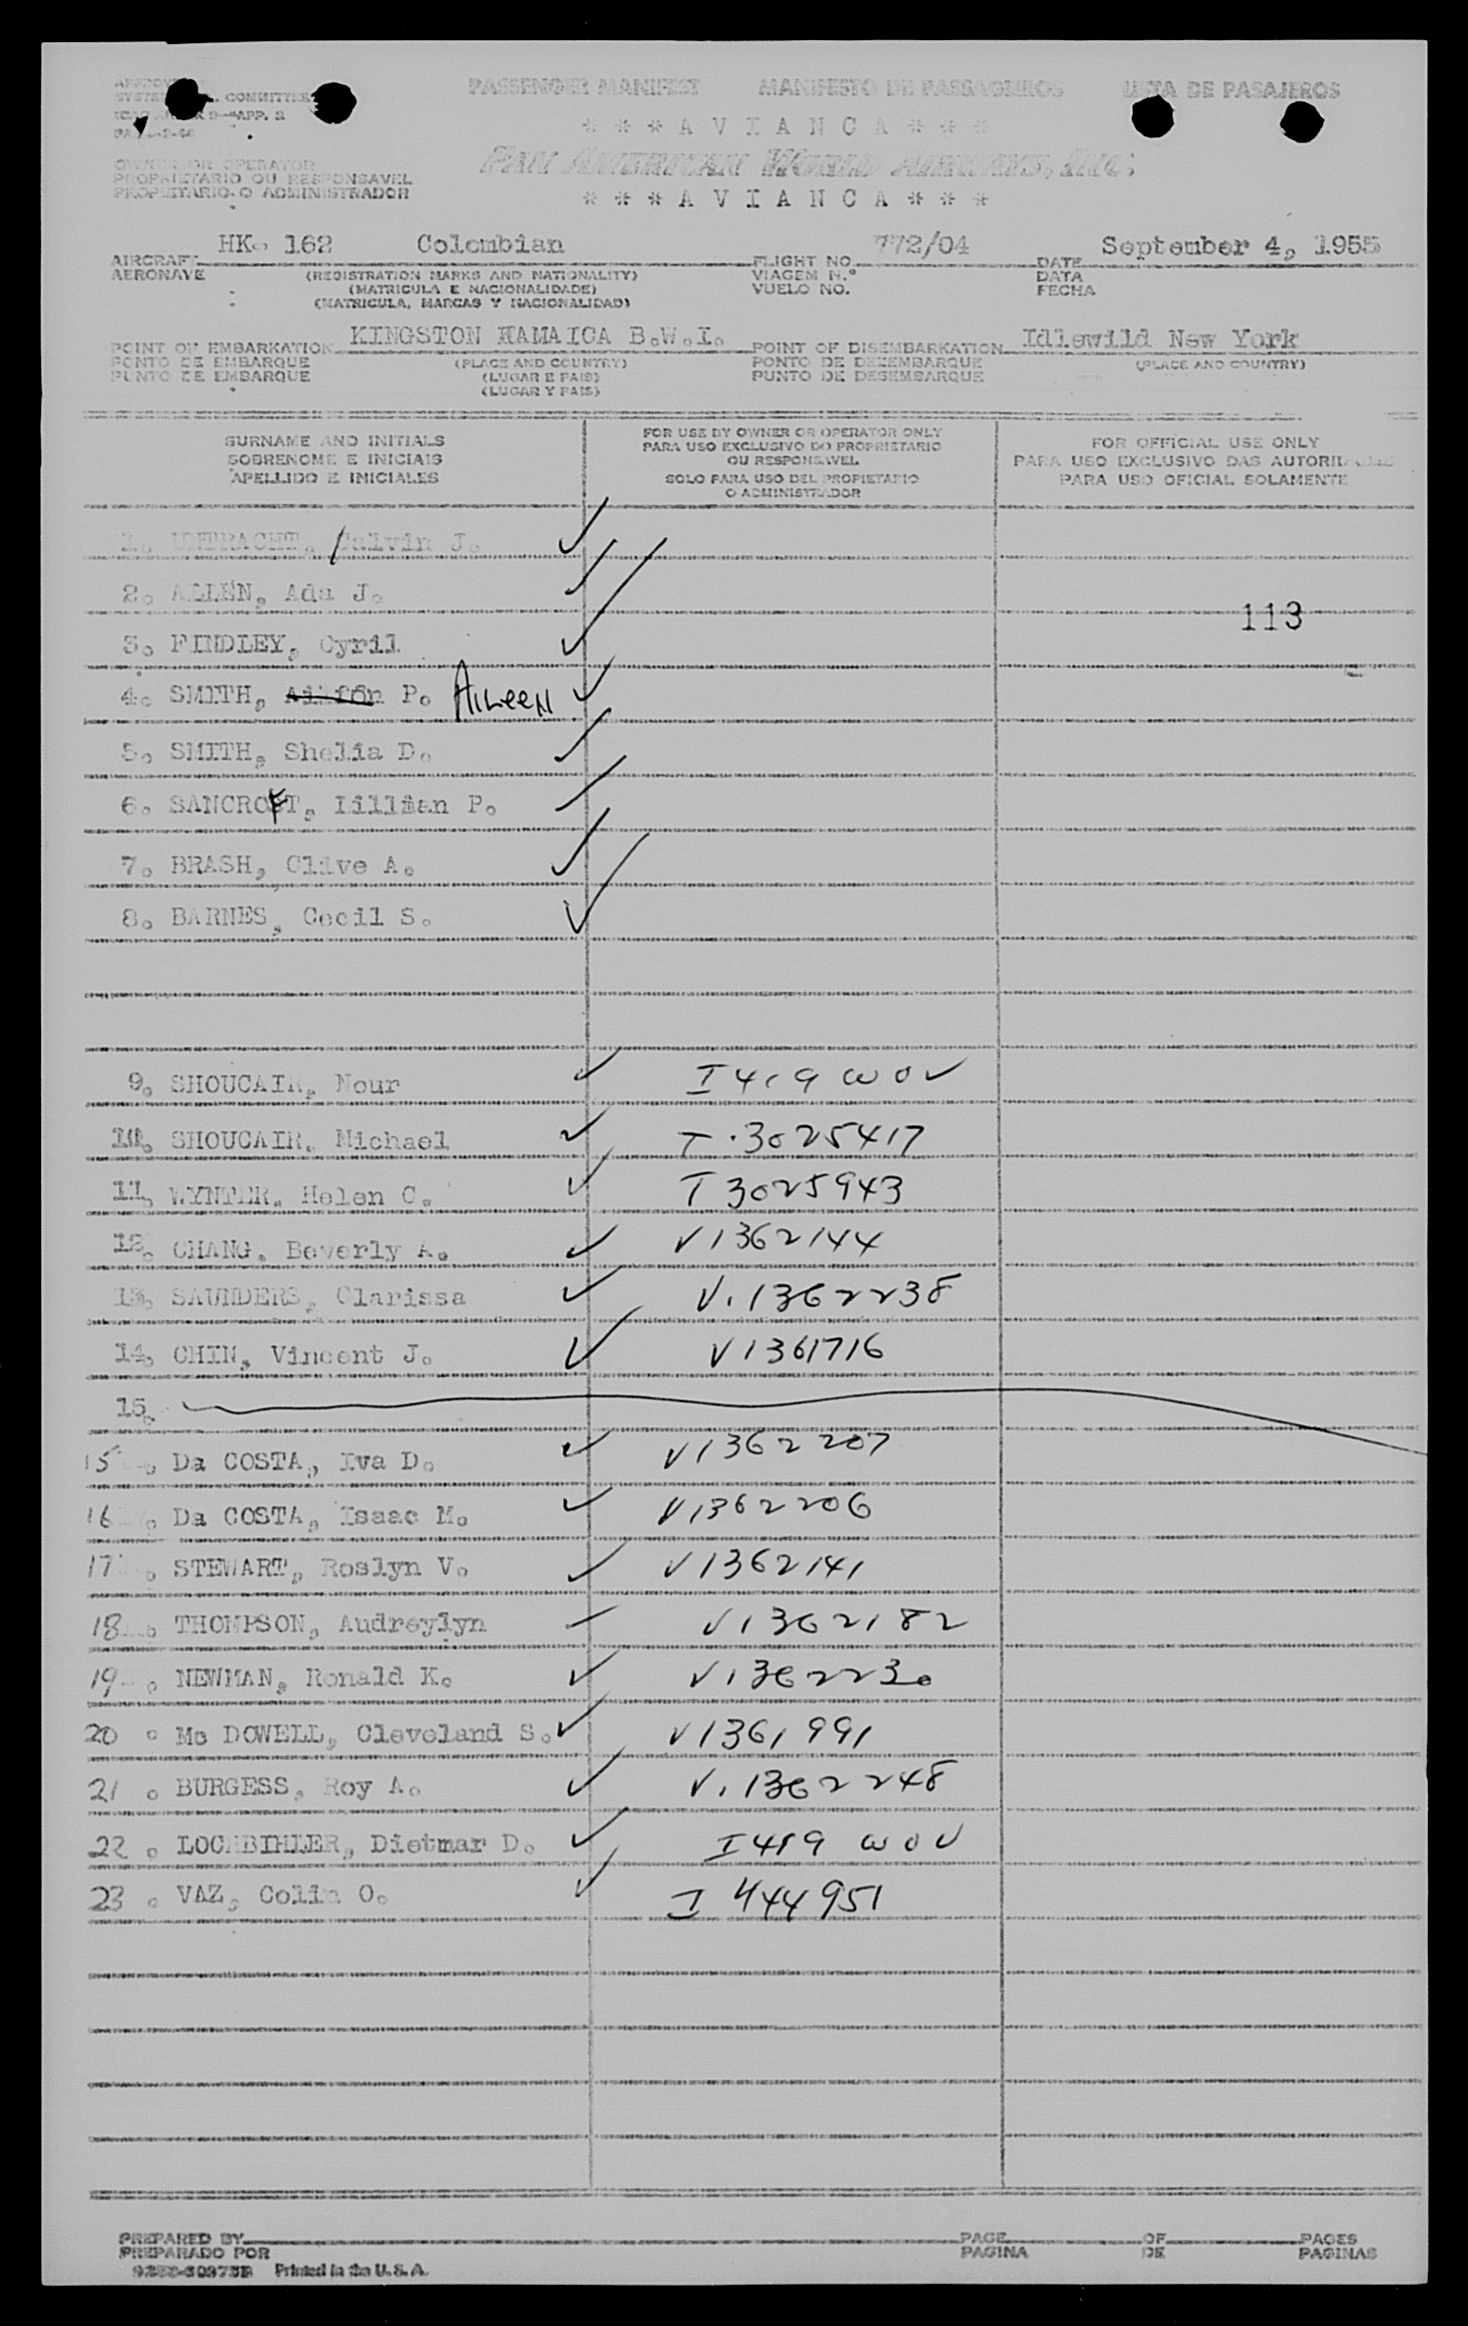 PASSENGER MANIFEST MANIFESTO DE PASSAGEIROS LISTA DE PASAJEROS
COMMITTEE
9—APP. 2
* * * A V I A N C A * * *
PAN AMERICAN WORLD AIRWAYS, INC.
* * * A V I A N C A * * *
OWNER OR OPERATOR
PROPRIETARIO OU RESPONSAVEL
PROPIETARIO O ADMINISTRADOR
HK. 162 Colombian 772/04 September 4, 1955
AIRCRAFT FLIGHT NO. DATE
AERONAVE (REGISTRATION MARKS AND NATIONALITY) VIAGEM N.º DATA
(MATRICULA E NACIONALIDADE) VUELO NO. FECHA
(MATRICULA, MARCAS Y NACIONALIDAD)
KINGSTON HAMAICA B.W.I. Idlewild New York
POINT OF EMBARKATION POINT OF DISEMBARKATION
PONTO DE EMBARQUE (PLACE AND COUNTRY) PONTO DE DESEMBARQUE (PLACE AND COUNTRY)
PUNTO DE EMBARQUE (LUGAR E PAIS) PUNTO DE DESEMBARQUE
(LUGAR Y PAIS)
SURNAME AND INITIALS
SOBRENOME E INICIAIS
APELLIDO E INICIALES
FOR USE BY OWNER OR OPERATOR ONLY
PARA USO EXCLUSIVO DO PROPRIETARIO
OU RESPONSAVEL
SOLO PARA USO DEL PROPIETARIO
O ADMINISTRADOR
FOR OFFICIAL USE ONLY
PARA USO EXCLUSIVO DAS AUTORIDADES
PARA USO OFICIAL SOLAMENTE
1. Calvin J. ✓
2. ALLEN, Ada J. ✓
113
3. FINDLEY, Cyril ✓
4. SMITH, P. AiLeen ✓
5. SMITH, Shelia D. ✓
6. SANCROFT, Lillian P. ✓
7. BRASH, Clive A. ✓
8. BARNES, Cecil S. ✓
9. SHOUCAIR, Nour ✓ I 419 WOV
10. SHOUCAIR, Michael ✓ T. 3025417
11. WYNTER, Helen C. ✓ T 3025943
12. CHANG, Beverly A. ✓ V1362144
13. SAUNDERS, Clarissa ✓ V.1362238
14. CHIN, Vincent J. ✓ V1361716
15.
15. Da COSTA, Iva D. ✓ V1362207
16. Da COSTA, Isaac M. ✓ V1362206
17. STEWART, Roslyn V. ✓ V1362141
18. THOMPSON, Audreylyn V1362182
19. NEWMAN, Ronald K. ✓ V1362230
20. Mc DOWELL, Cleveland S. ✓ V1361991
21. BURGESS, Roy A. ✓ V.1362248
22. LOCHBIHLER, Dietmar D. ✓ I 419 WOV
23. VAZ, Colin O. ✓ I 444951
PREPARED BY PAGE OF PAGES
PREPARADO POR PAGINA DE PAGINAS
Printed in the U. S. A.